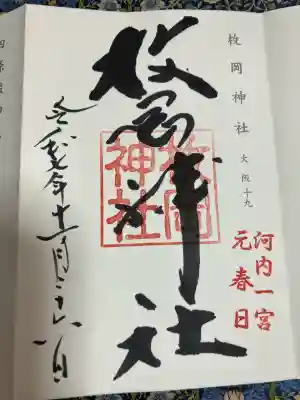 枚岡神社 大阪十九
河内一宮
元春日
枚岡神社
枚岡
神社
令和六年十二月二十六日